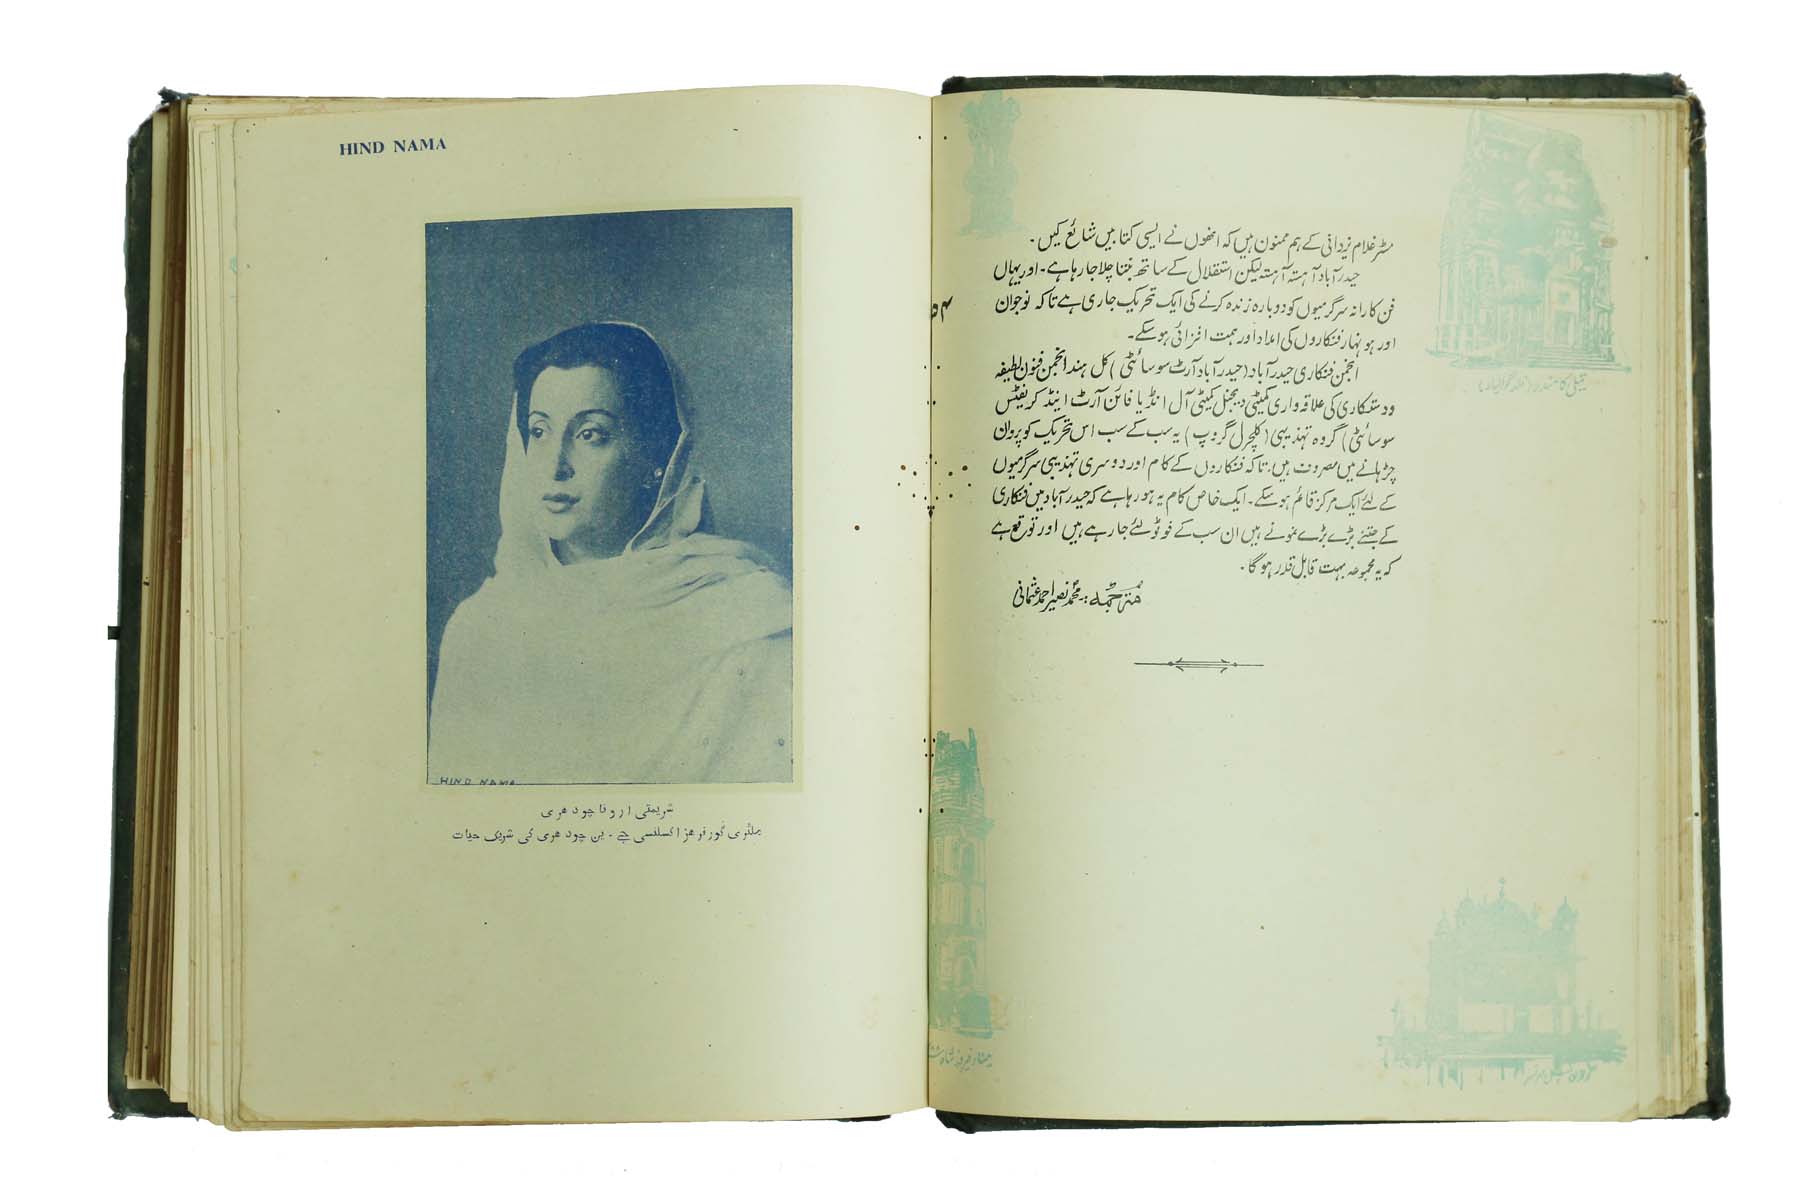 HIND NAMA
HIND NAMA
شریمتی ارونا چودھری
ملٹری گورنر ھز اکسلنسی جے - ین چودھری کی شریک حیات
مسٹر غلام یزدانی کے ہم ممنون ہیں کہ انھوں نے ایسی کتابیں شائع کیں۔
حیدرآباد آہستہ آہستہ لیکن استقلال کے ساتھ بنتا چلا جا رہا ہے۔ اور یہاں
فن کارانہ سرگرمیوں کو دوبارہ زندہ کرنے کی ایک تحریک جاری ہے تاکہ نوجوان
اور ہونہار فنکاروں کی امداد اور ہمت افزائی ہو سکے۔
انجمن فنکاری حیدرآباد (حیدرآباد آرٹ سوسائٹی) کل ہند انجمن فنون لطیفہ
ودستکاری کی علاقہ واری کمیٹی (ریجنل کمیٹی آل انڈیا فائن آرٹ اینڈ کریفٹس
سوسائٹی) گروہ تہذیبی (کلچرل گروپ) یہ سب کے سب اس تحریک کو پروان
چڑہانے میں مصروف ہیں، تاکہ فنکاروں کے کام اور دوسری تہذیبی سرگرمیوں
کے لئے ایک مرکز قائم ہو سکے۔ ایک خاص کام یہ ہو رہا ہے کہ حیدرآباد میں فنکاری
کے جتنے بڑے بڑے نمونے ہیں ان سب کے فوٹو لئے جا رہے ہیں اور توقع ہے
کہ یہ مجموعہ بہت قابل قدر ہو گا۔
مترجمہ:۔ محمد نصیر احمد عثمانی
۵۴
تیلی کا مندر (قلعہ گوالیار)
مینار فیروز شاہ
گولڈن ٹمپل امرتسر